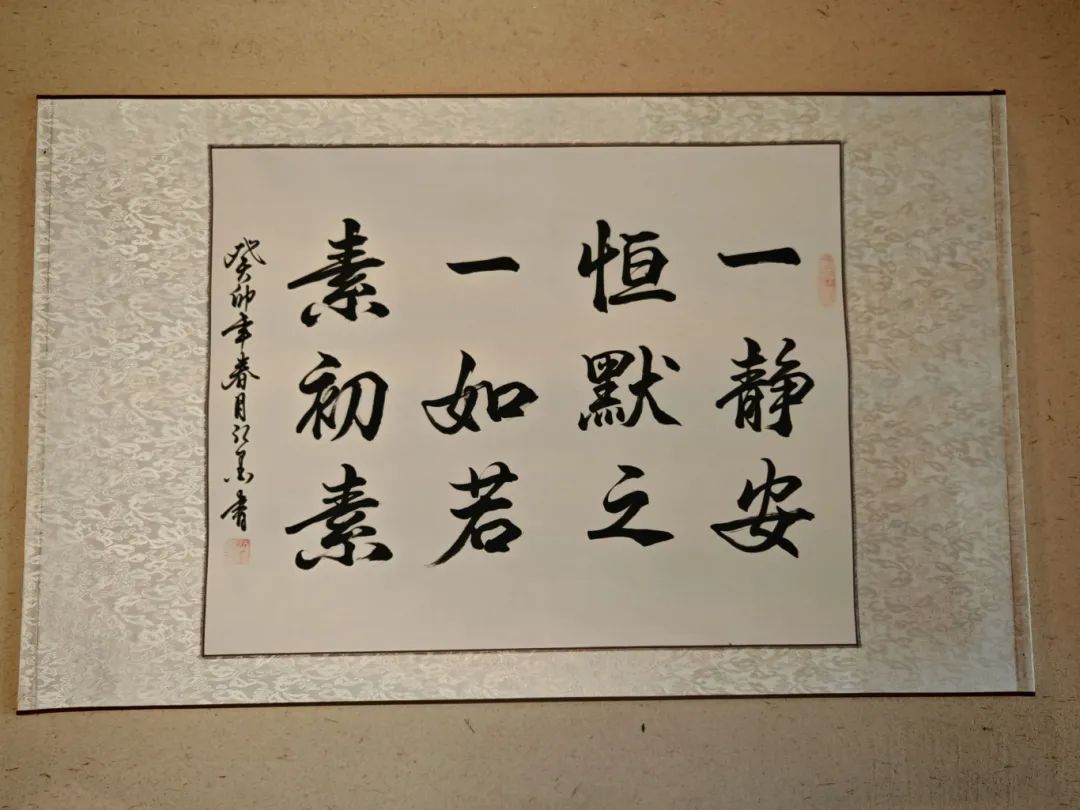 一静安
恒默之
一如若
素初素
癸卯年春月江墨香